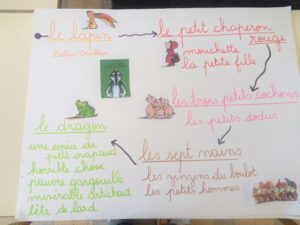 le lapin
Belles Oreilles
le petit chaperon
rouge
mouchette
la petite fille
les trois petits cochons
les petits dodus
les sept nains
les zinzins du boulot
les petits hommes
le dragon
une espèce de
petit crapaud
horrible chose
pauvre gargouille
misérable artichaut
tête de lard